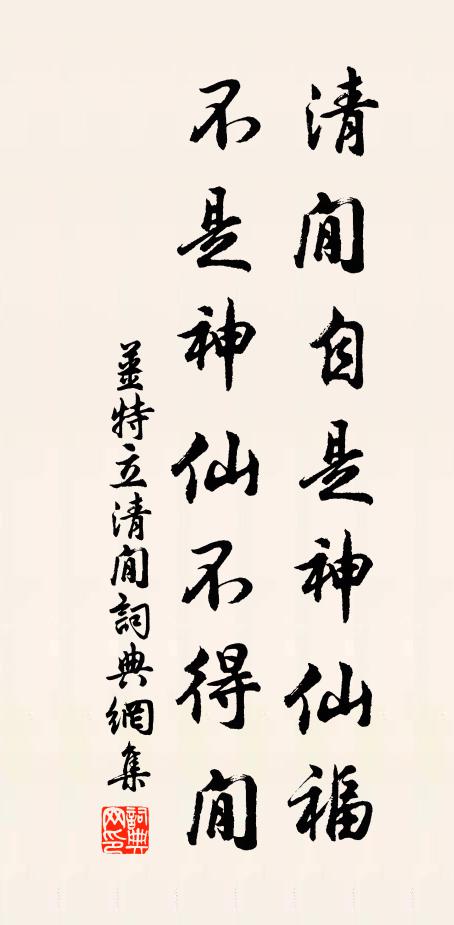 清閒自是神仙福
不是神仙不得閒
薑特立清閒詞典網集
詞典網印